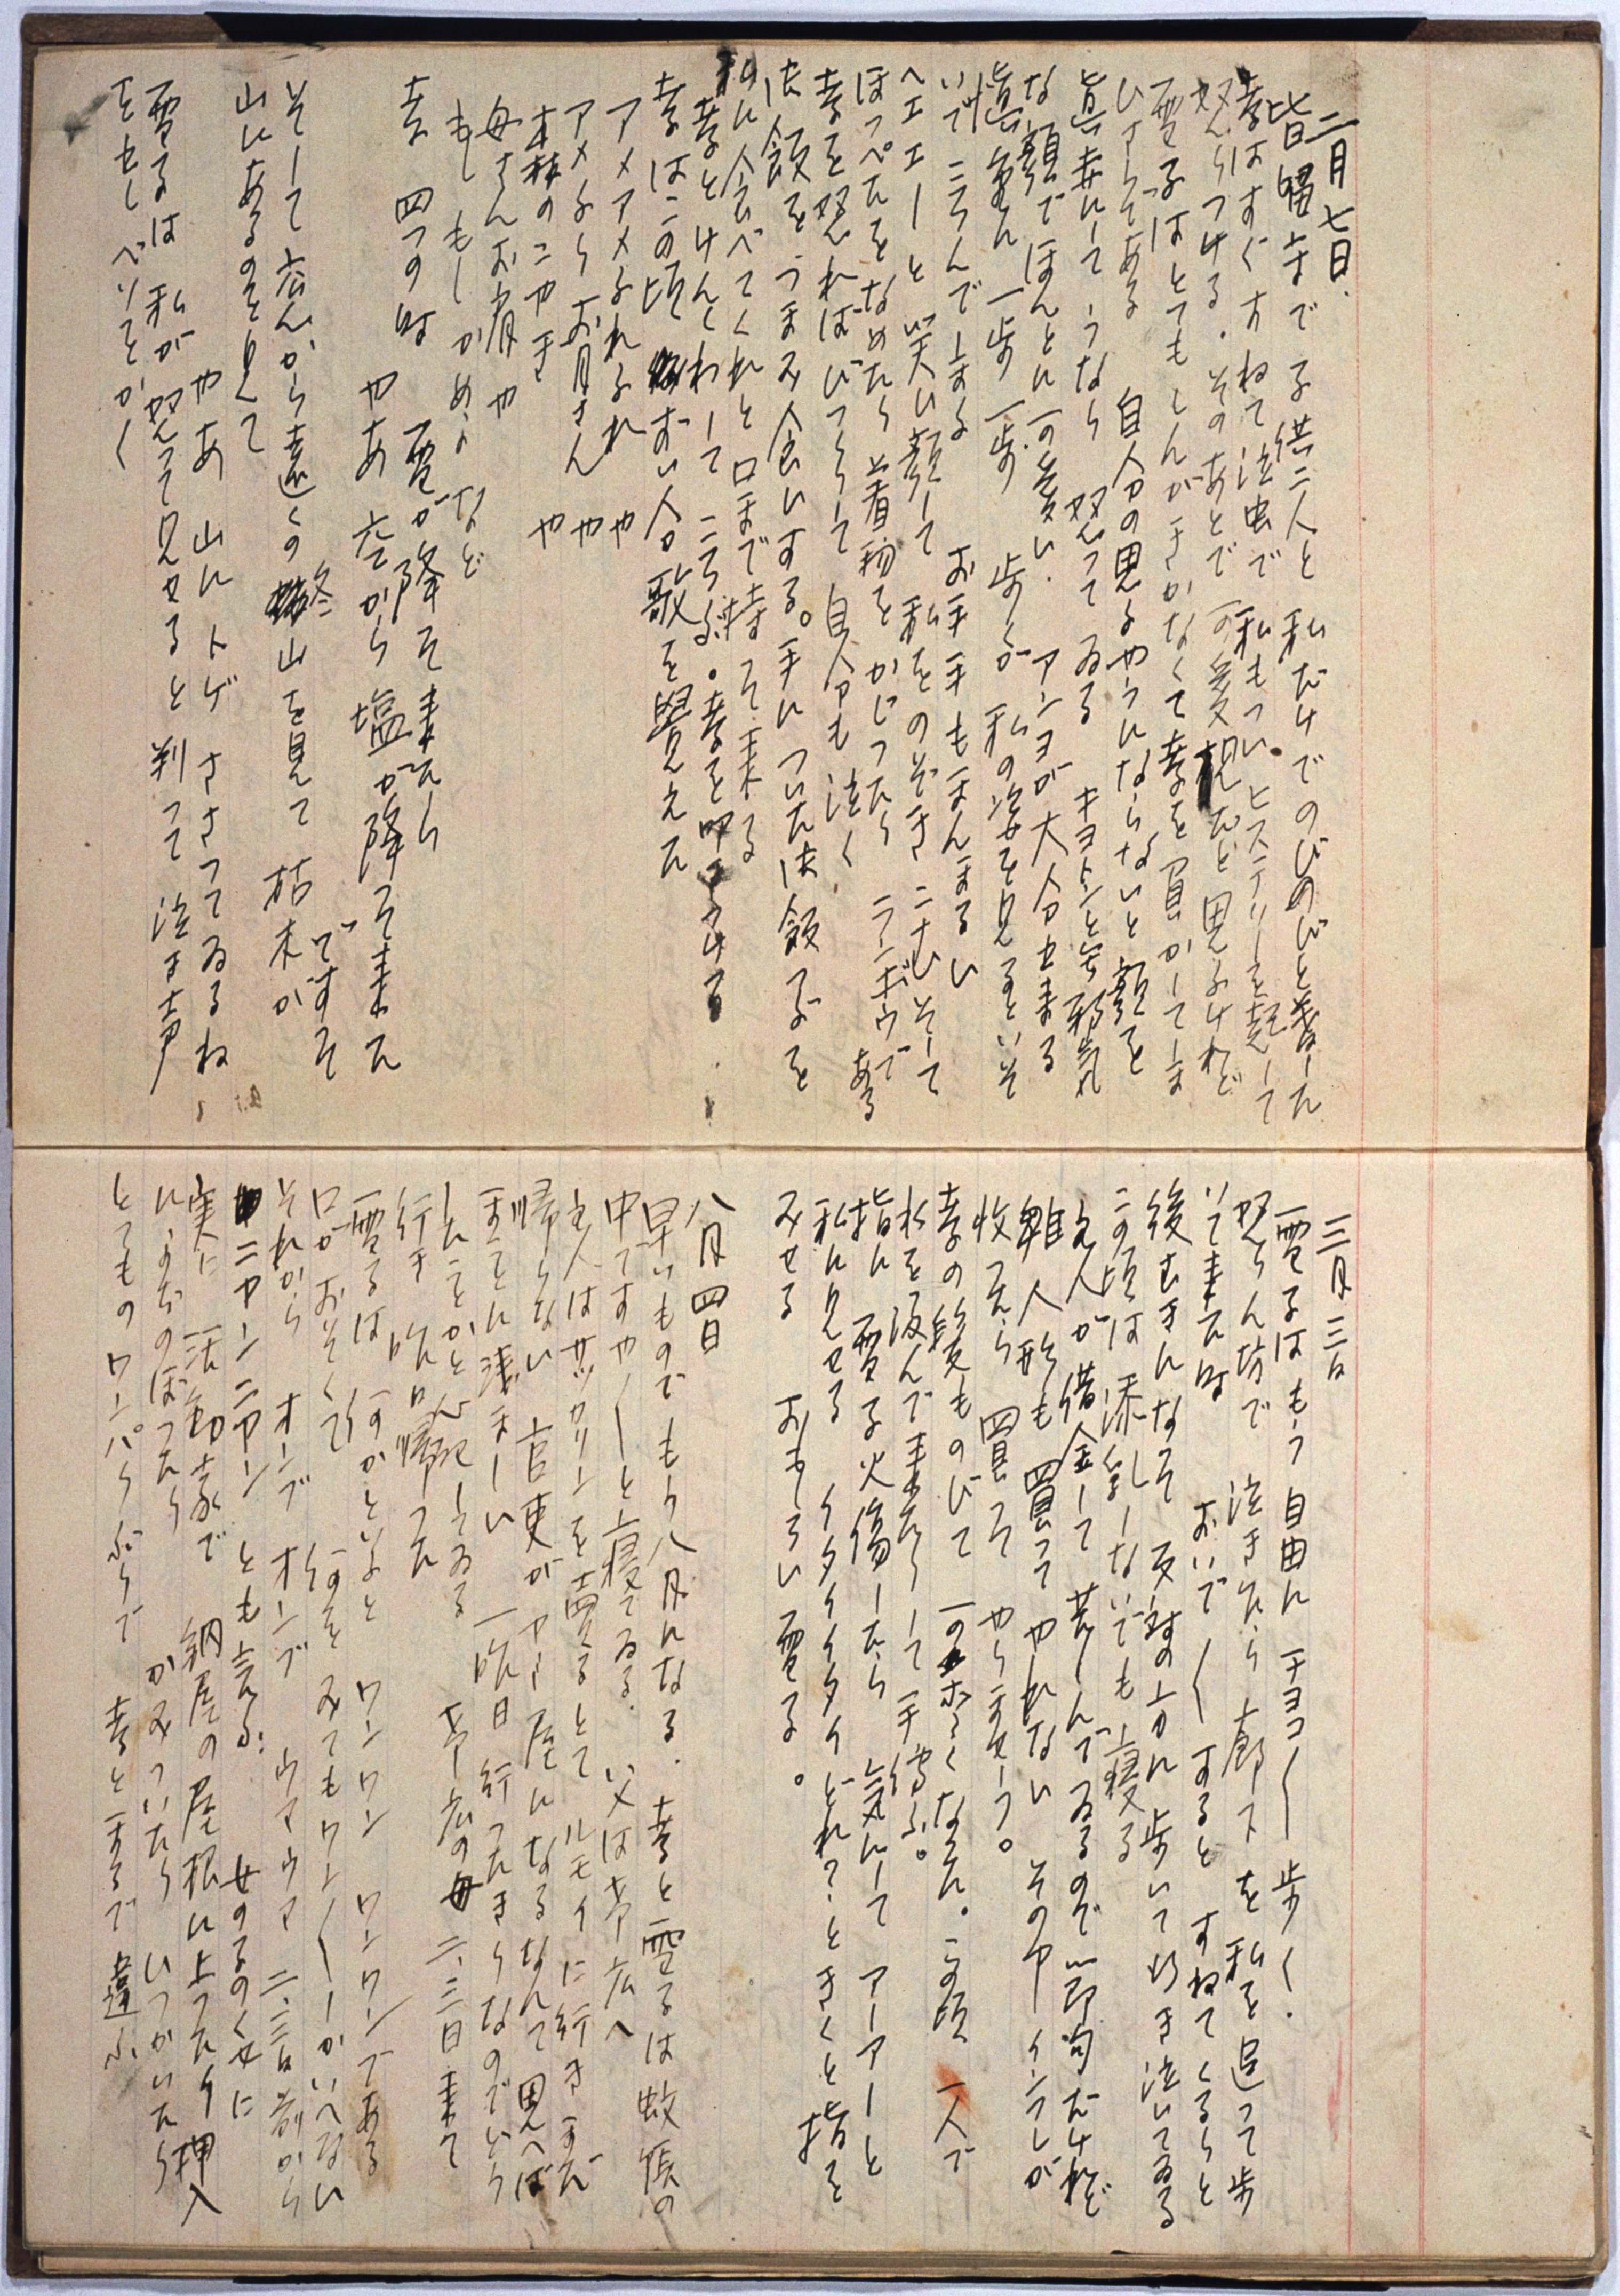 二月七日、
皆留守で子供二人と 私だけでのびのびと暮した
孝はすぐすねて泣虫で 私もついヒステリーを起して
怒りつける。そのあとで可愛想だと思ふけれど
雪子はとてもしんがきかなくて孝を負かしてま
ひさうである 自分の思ふやうにならないと顔を
真赤にして うなり 怒って ゐる キヨトンと無邪気
な顔でほんとに可愛い。アンヨが大分出来る
真剣 一歩 一歩 歩るが 私の姿を見るといそ
いで ころんで止まる お手手もまんまるい
ヘエエーと 笑い顔して 私をのぞきこむ そして
ほっぺたをなめたり 着物をかじったり ランボウである
孝を怒ればびっくりして 自分も泣く
御飯をつまみ食いする。手についた御飯つぶを
私に食べてくれと口まで持って来る
孝とけんくわして ころぶ。孝を叩く
孝はこの頃 ずい分歌を覚えた
アメアメふれふれ や
アメふり お月さん や
木林のこやぎ や
母さんお肩や
もしもしかめよ など
孝 四つの時 雪が降って来たら
やあ 空から塩が降って来た
ですって
そして 広んから遠くの 山を見て 枯木が
山にあるのを見て
やあ 山に トゲ ささってゐるね
雪子は 私が怒って見せると 判って 泣き声
をだし べソをかく
三月三日
雪子はもう 自由に チヨコ〳〵歩く。
怒りん坊で 泣きたら 廊下を 私を追って歩
いて来た時 おいで〳〵すると すねてくるりと
後むきになって 反対の方に 歩いて行き泣いてゐる
この頃は 添乳しないでも寝る
主人が 借金して 苦しんでゐるので 節句だけれど
雛人形も買って やれない その中 インフレが
收ったら 買って やりませう。
孝の髪ものびて 可愛くなった。この頃 一人で
水を汲んで来たりして手伝ふ。
指に 雪子火傷したら 気にして アーアーと
私に見せる イタイイタイ どれ？ときくと指を
みせる おもしろい雪子。
八月四日
早いものでもう八月になる。孝と雪子は蚊帳の
中ですや〳〵と寝てゐる。父は帯広へ
主人はサッカリンを売るとて ルモイに行きまだ
帰らない 官吏がヤミ屋になるなんて思へば
まことに凄まじい 一昨日行ったきりなのでどう
したことかと心配してゐる 帯広の母 二、三日来て
行き 昨日帰った
雪子は 何かといふと ワンワン ワンワンである
口がおそくて 何をみてもワン〳〵しかいへない
それから オンブ オンブ ウマウマ 二、三日前から
ニヤーンニヤン とも言ふ。
実に 活動家で 女の子のくせに
に、うちのぼったり 納屋の屋根に上ったり押入
かみついたり ひつかいたり
とてものワンパクぶりで 孝とまるで違ふ、